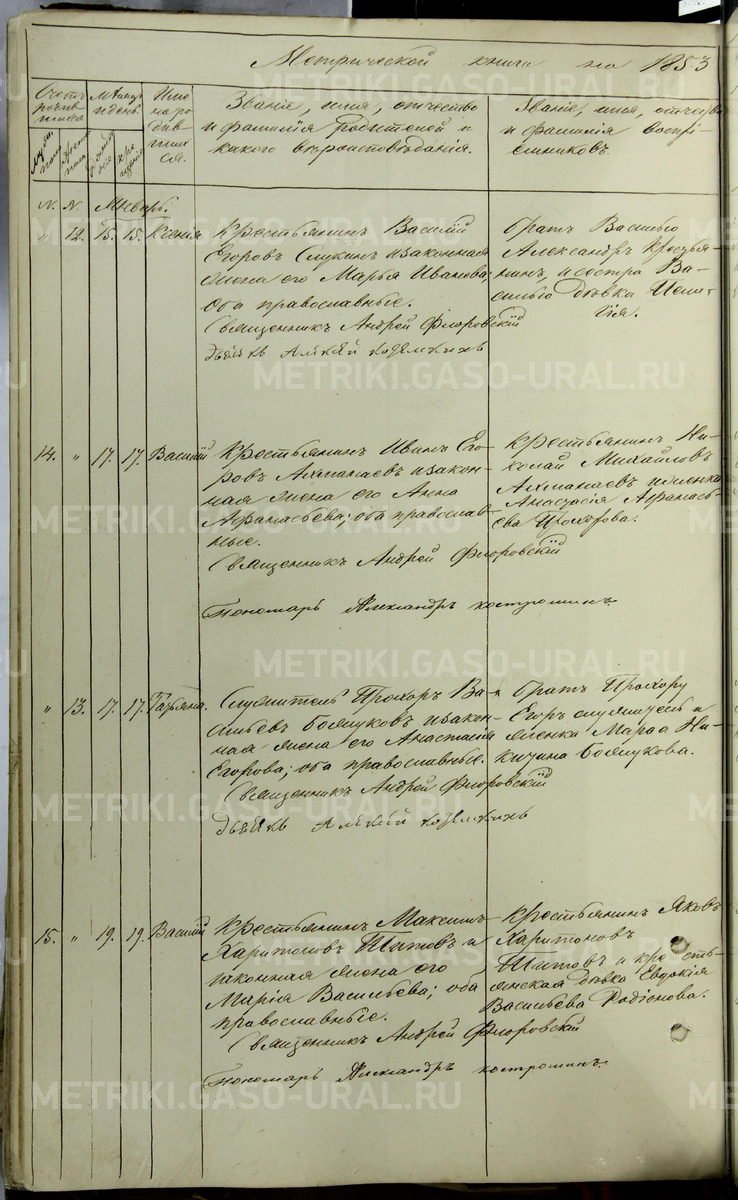 Метрической книги на 1853
Счетъ родившихся
Мѣсяцъ и день
Имена родившихся.
Званіе, имя, отчество
и фамилія родителей и
какого вѣроисповѣданія.
Званіе, имя, отчество
и фамилія воспрі-
емниковъ.
N. N. Январь.
" 12. 15. 15. Ксенія
Крестьянинъ Василій
Егоровъ и законная
жена его Марья Иванова;
оба православные.
Священникъ Андрей Флоровскій
дьячекъ Алексѣй
братъ Василью
Александръ крестья-
нинъ, и сестра Ва-
силью дѣвка
14. " 17. 17. Василій
Крестьянинъ Иванъ Его-
ровъ Ахманаевъ и закон-
ная жена его Анна
Афанасьева; оба православ-
ные.
Священникъ Андрей Флоровскій
Пономарь Александръ Костроминъ.
Крестьянинъ Ни-
колай Михайловъ
Ахманаевъ и женка
Анастасія Афанась-
ева
" 13. 17. 17. Татьяна.
Служитель Прохоръ Ва-
сильевъ и закон-
ная жена его Анастасія
Егорова; оба православные.
Священникъ Андрей Флоровскій
дьячекъ Алексѣй
братъ Прохору
Егоръ служитель и
женка Марѳа Ни-
китина
15. " 19. 19. Василій
Крестьянинъ Максимъ
Харитоновъ Титовъ и
законная жена его
Марія Васильева; оба
православные.
Священникъ Андрей Флоровскій
Пономарь Александръ Костроминъ.
Крестьянинъ Яковъ
Харитоновъ
Титовъ и кресть-
янская дѣвка Евдокія
Васильева Родіонова.
METRIKI.GASO-URAL.RU